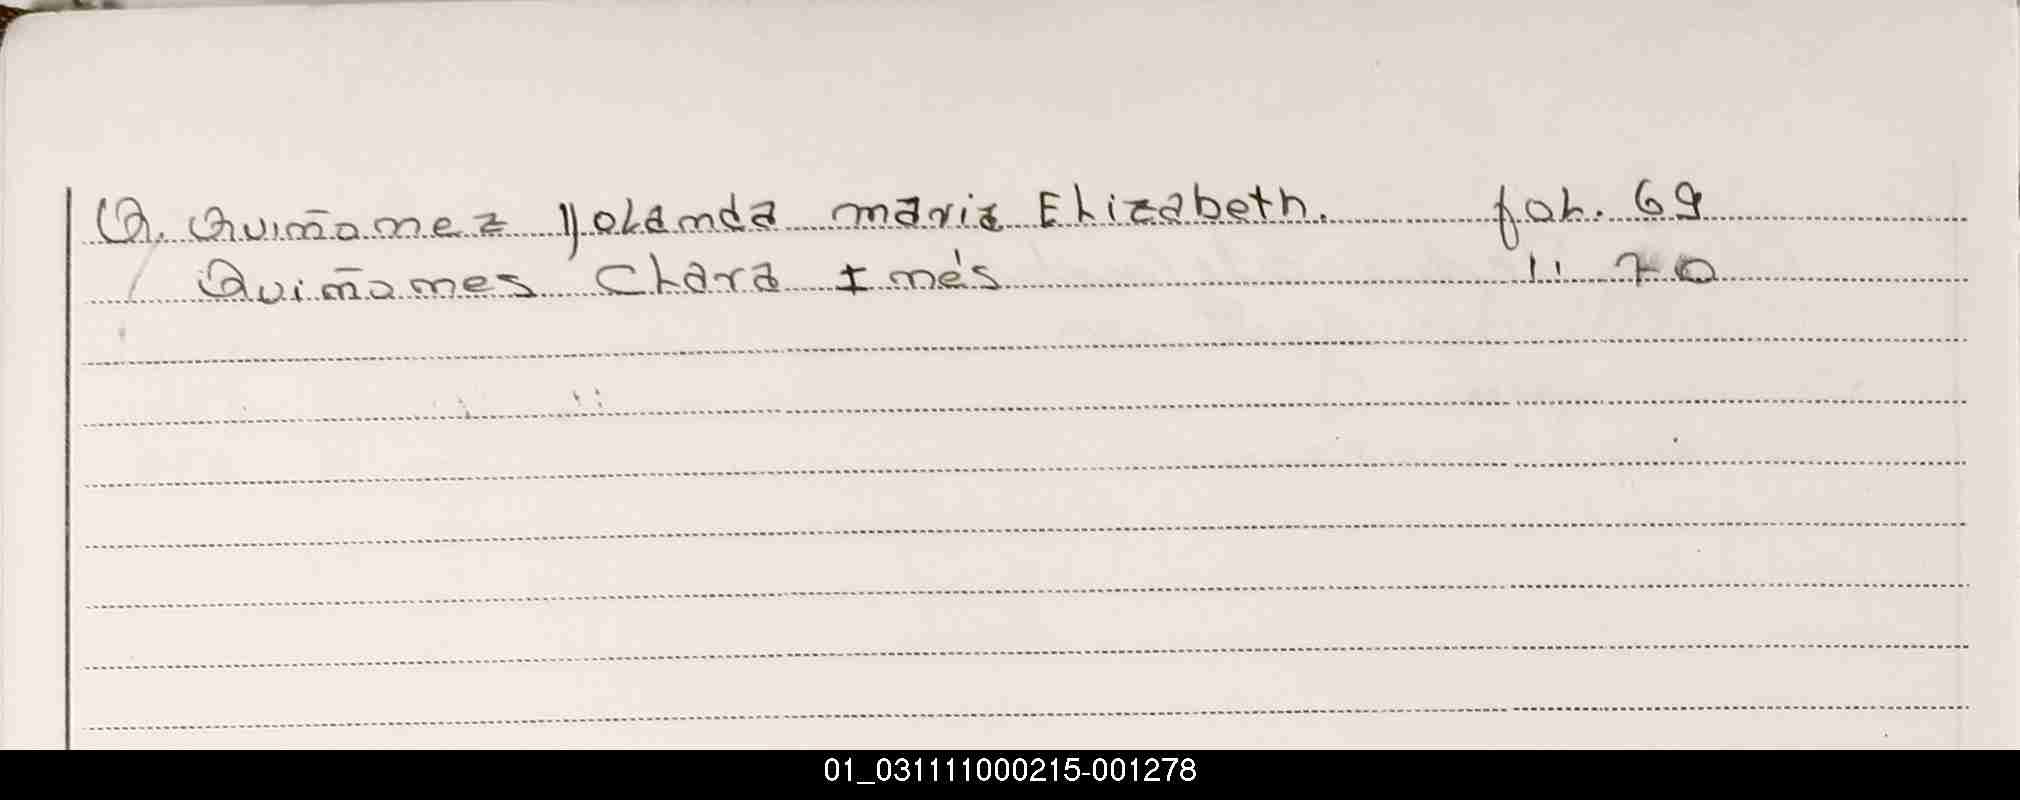 Q. Quiñonez Yolanda maria Elizabeth. fol. 69
Quiñones Clara Inés " 70
01_031111000215-001278